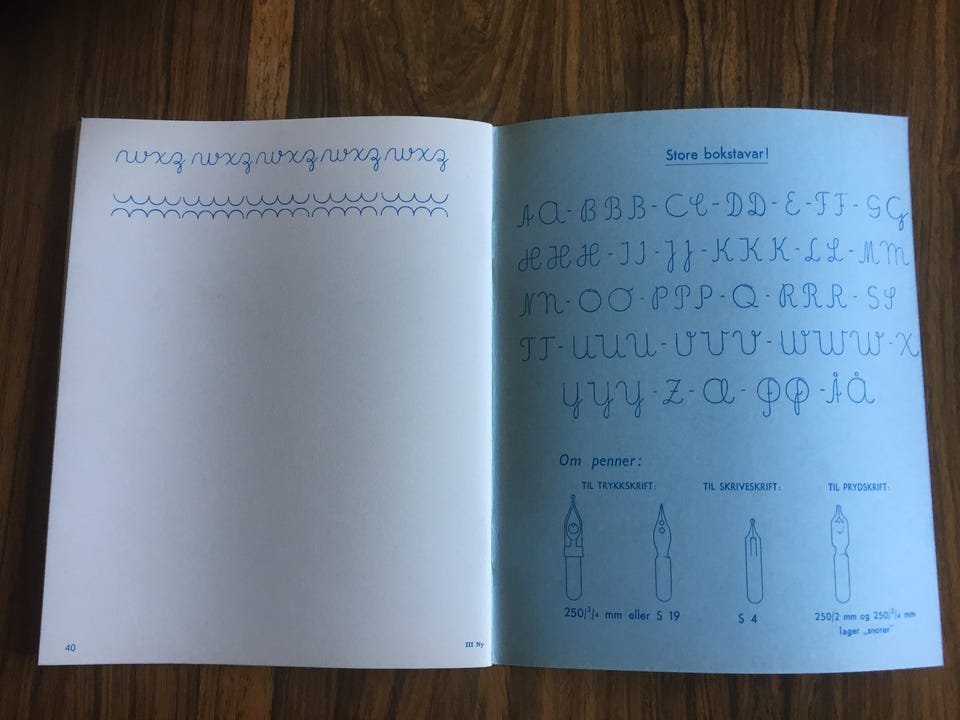 wxz wxz wxz wxz wxz
40
III Ny
Store bokstavar!
A A - B B B - C C - D D - E - F F - G G
H H H - I I - J J - K K K - L L - M M
N N - O O - P P P - Q - R R R - S S
T T - U U U - V V V - W W W - X
Y Y Y - Z - Æ - Ø Ø - Å Å
Om penner:
TIL TRYKKSKRIFT: TIL SKRIVESKRIFT: TIL PRYDSKRIFT:
250/³/₄ mm eller S 19 S 4 250/2 mm og 250/³/₄ mm
lager „snorer"